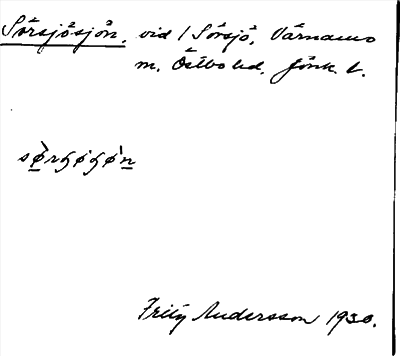 Sörsjösjön. vid 1 Sörsjö, Värnamo
m. Östbo hd. Jönk. l.
Fritz Andersson 1930.